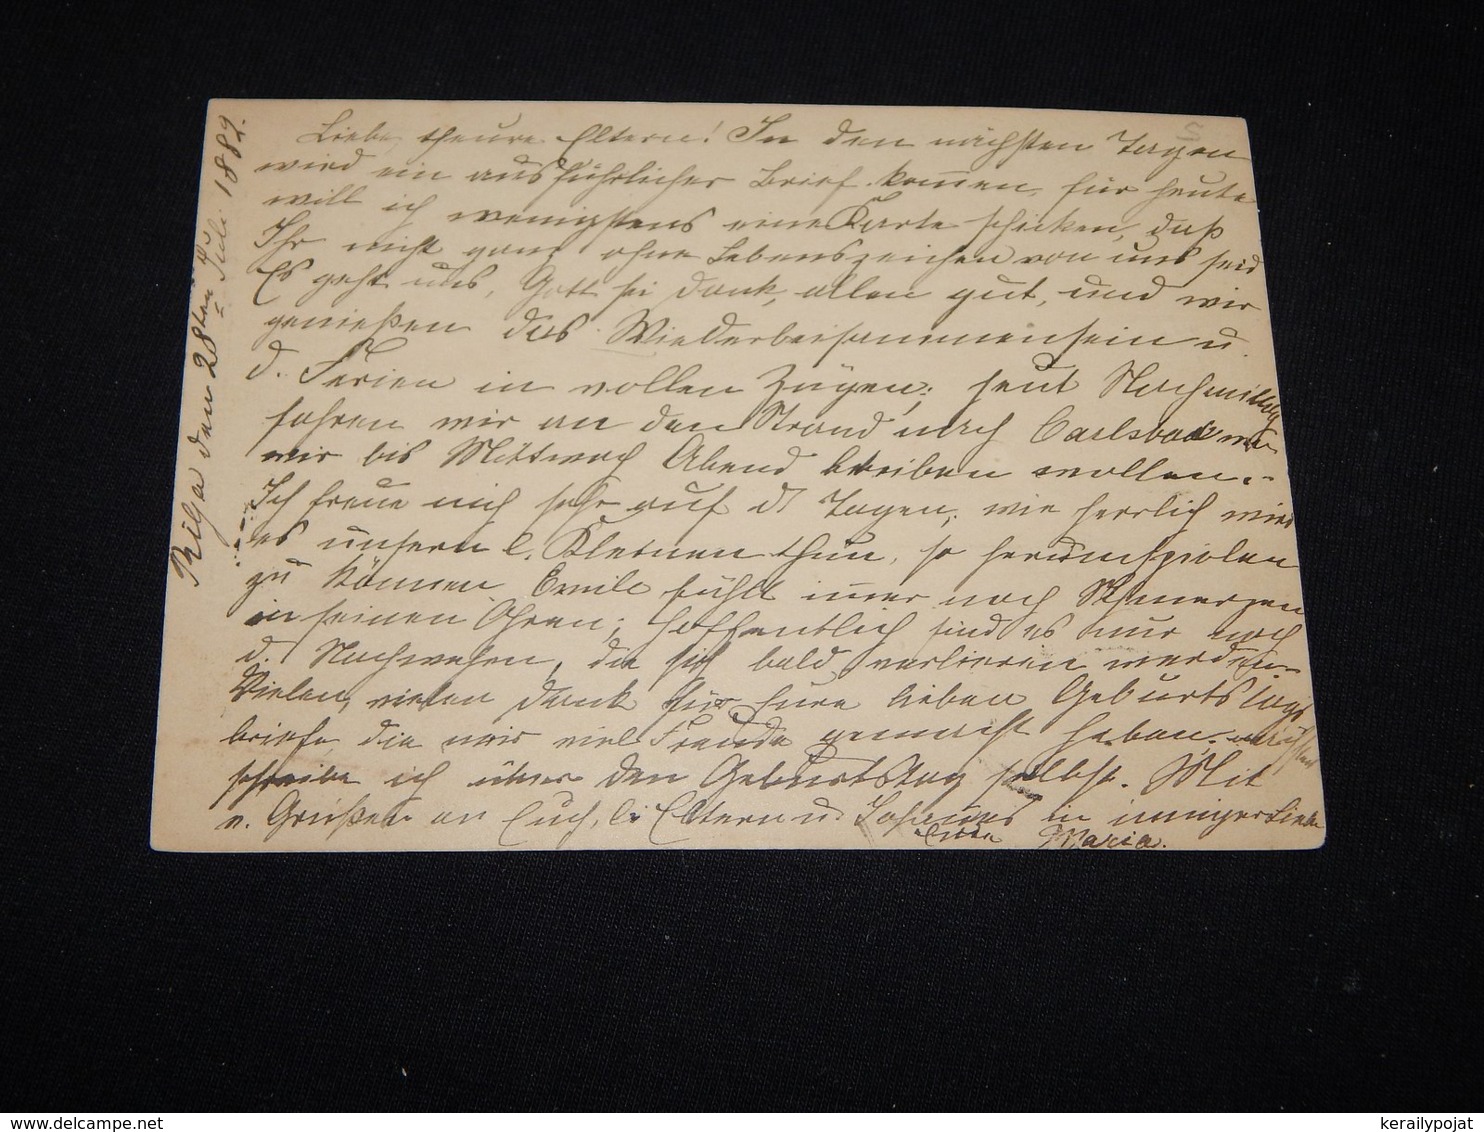 Riga den 28ten Juli 1882.
Liebe, theure Eltern! In den nächsten Tagen
wird ein ausführlicher Brief kommen, für heute
will ich wenigstens eine Karte schicken, daß
Ihr nicht ganz ohne Lebenszeichen von uns seid
Es geht uns, Gott sei Dank, allen gut, und wir
genießen das Wiederbeisammensein u.
d. Ferien in vollen Zügen; heut Nachmittag
fahren wir an den Strand nach Carlsbad wo
wir bis Mittwoch Abend bleiben wollen.
Ich freue mich sehr auf d. Tagen, wie herrlich wird
es unsern l. Kleinen thun, so herumspielen
zu können. Emile fühlt immer noch Schmerzen
in seinen Ohren; hoffentlich sind es nur noch
d. Nachwehen, die sich bald verlieren werden
Vielen, vielen Dank für Eure lieben Geburtstags
briefe die mir viel Freude gemacht haben,
schreibe ich über den Geburtstag selbst. Mit
v. Grüßen an Euch, l. Eltern u. Johannes in inniger Liebe
Eure Maria.
kerailypojat